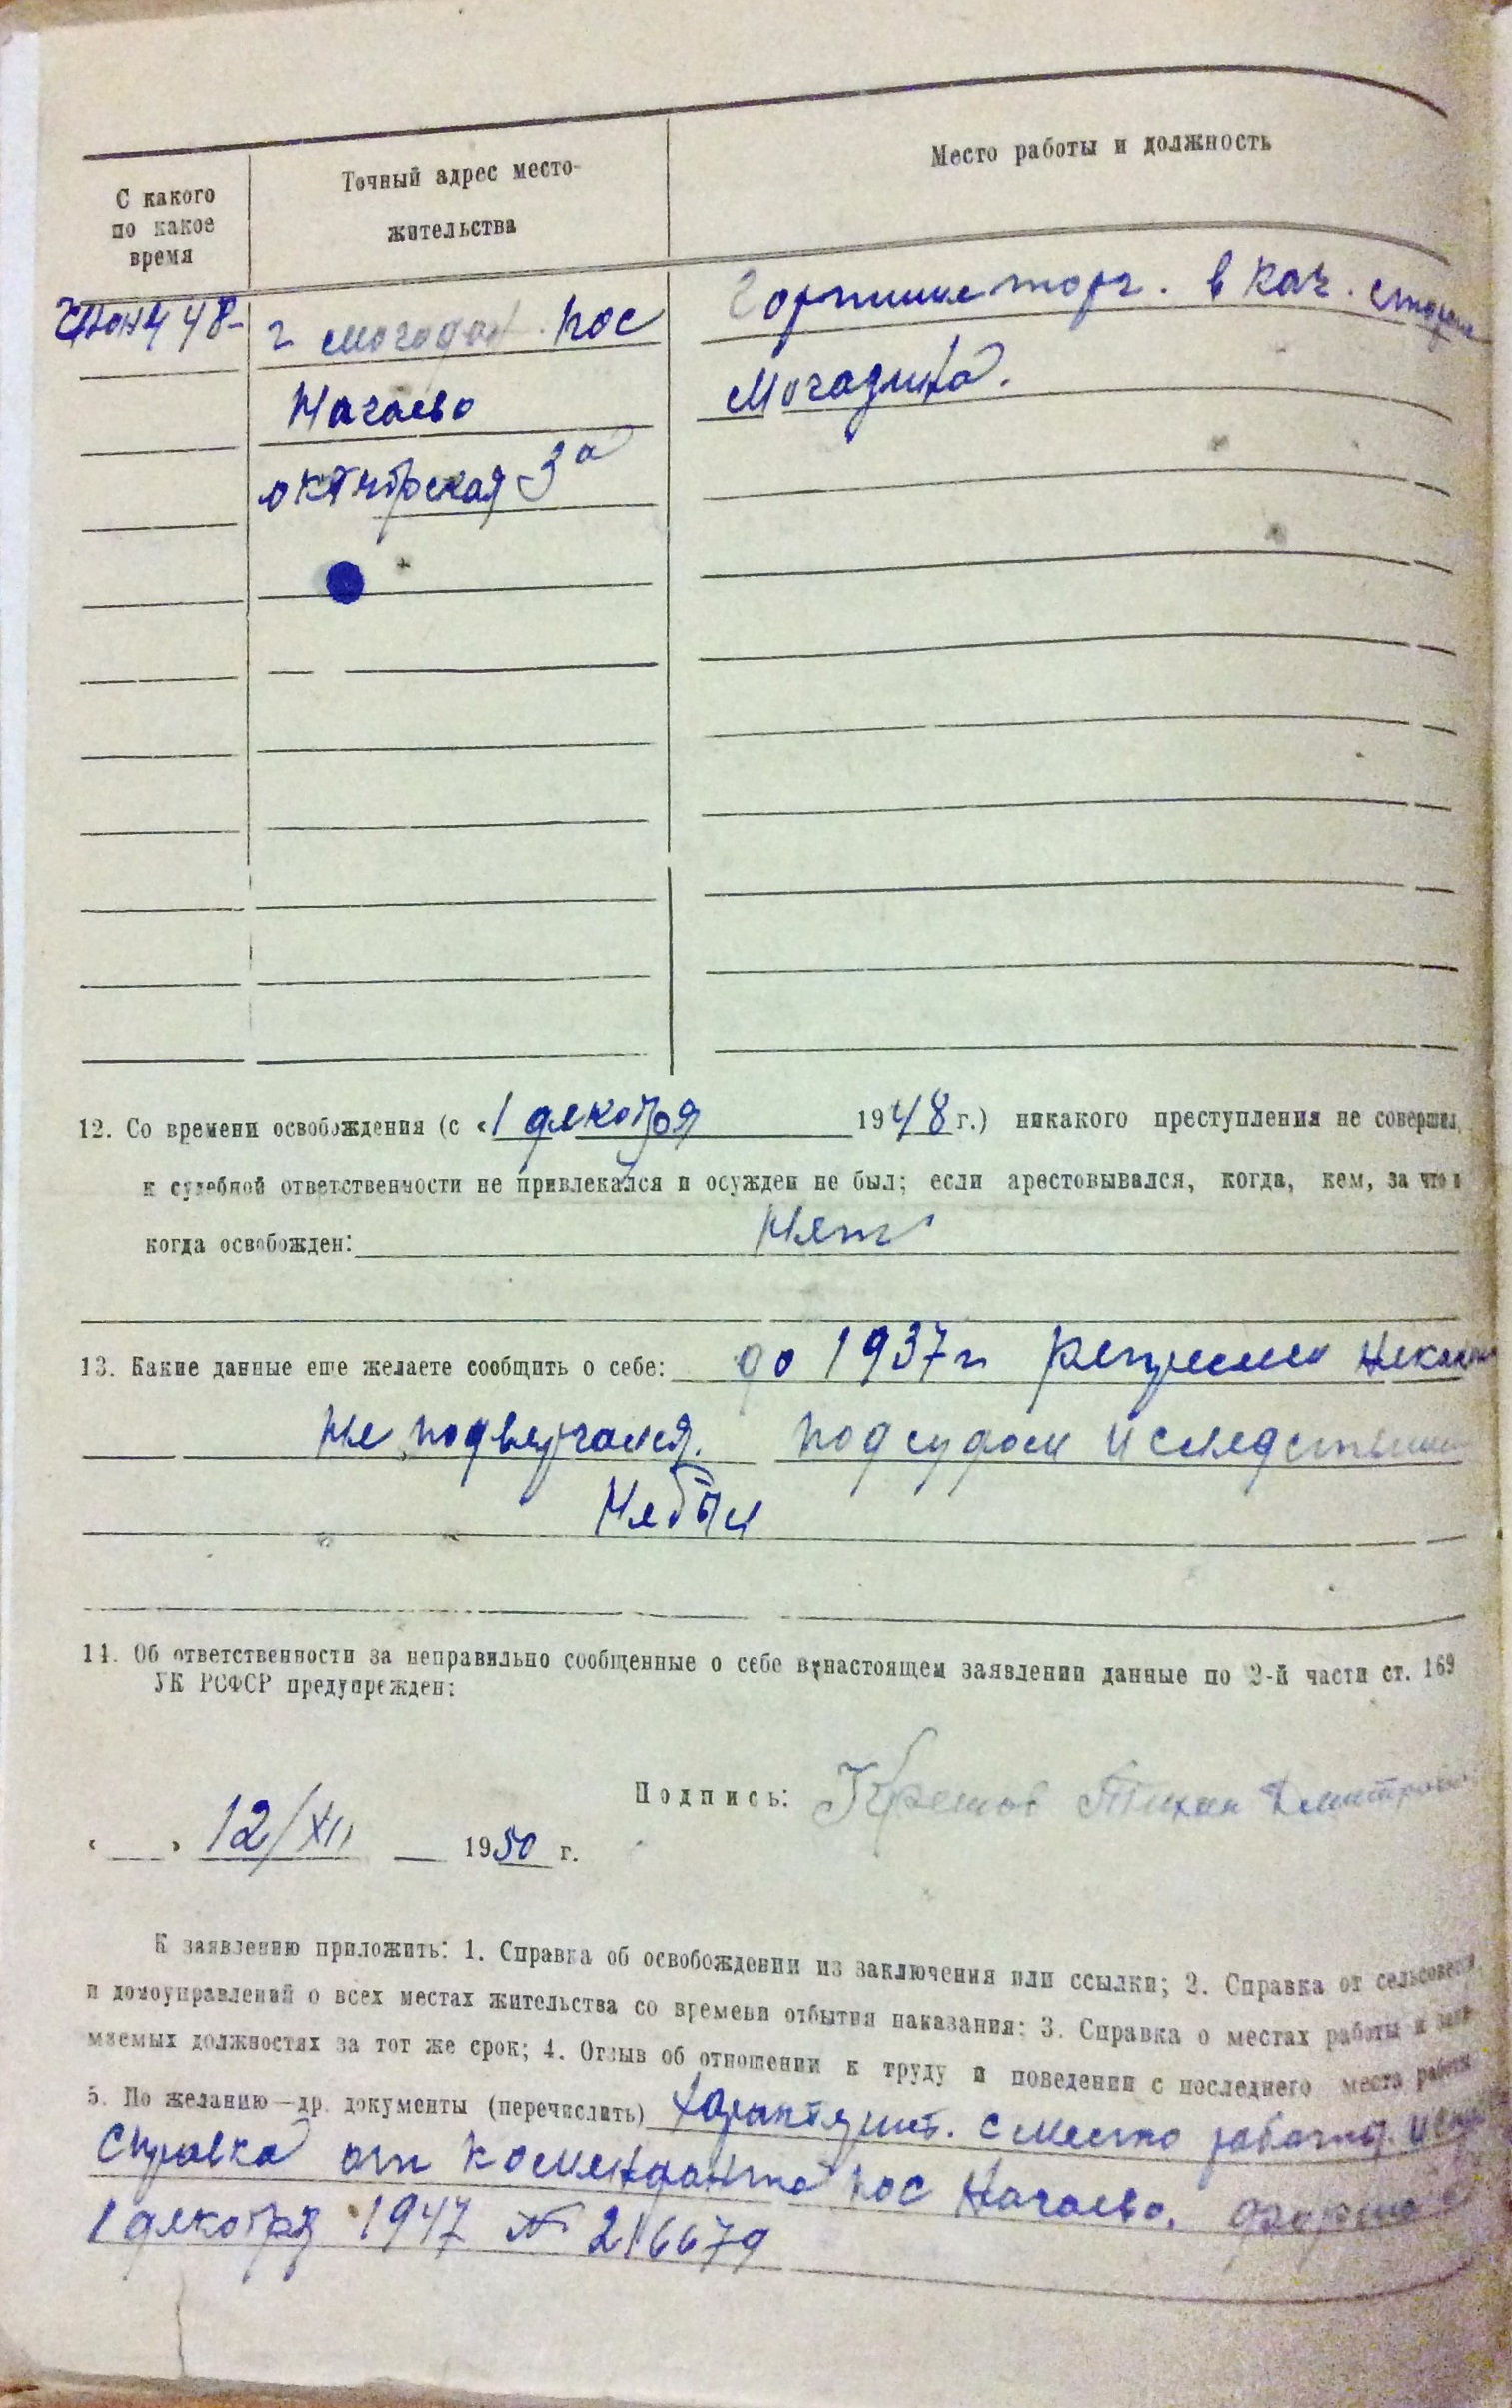 С какого
по какое
время
Точный адрес место-
жительства
Место работы и должность
48- г Могодан. пос
в кач.
Нагаево
Магазина.
октябрская 3а
12. Со времени освобождения (с «1 декабря 1948 г.) никакого преступления не совершил,
к судебной ответственности не привлекался и осужден не был; если арестовывался, когда, кем, за что и
когда освобожден: Нет
13. Какие данные еще желаете сообщить о себе: до 1937 г репресеи
не подвергался. под судом и следствием
не был
14. Об ответственности за неправильно сообщенные о себе в настоящем заявлении данные по 2-й части ст. 169
УК РСФСР предупрежден:
Подпись: Тихон Дмитрови
« » 12/XII 1950 г.
К заявлению приложить: 1. Справка об освобождении из заключения или ссылки; 2. Справка от сельсовета
и домоуправлений о всех местах жительства со времени отбытия наказания; 3. Справка о местах работы и зани-
маемых должностях за тот же срок; 4. Отзыв об отношении к труду и поведении с последнего места работы
5. По желанию—др. документы (перечислить) с место работы.
Справка от коменданта пос Нагаево. форма
1 декабря 1947 № 216679